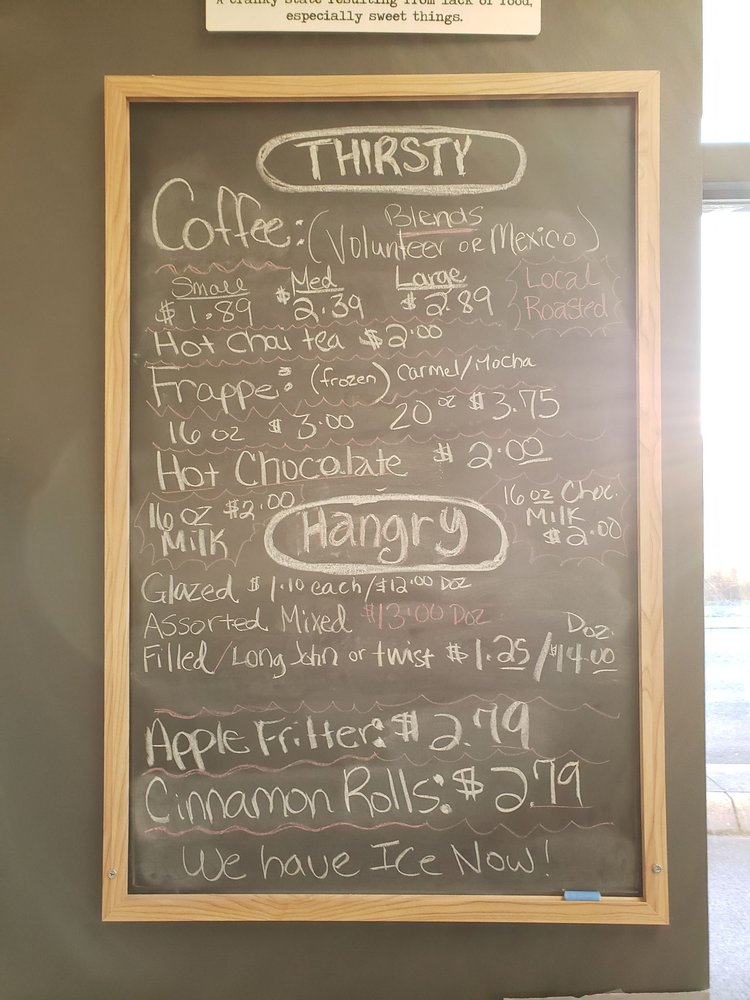 A cranky state resulting from lack of food,
especially sweet things.
THIRSTY
Coffee: (Blends Volunteer or Mexico)
Small Med Large
$1.89 $2.39 $2.89
Local Roasted
Hot Chai tea $2.00
Frappe: (frozen) Carmel/Mocha
16 oz $3.00 20 oz $3.75
Hot Chocolate $2.00
16 oz $2.00 Milk
Hangry
16 oz Choc. Milk $2.00
Glazed $1.10 each/$12.00 Doz
Assorted Mixed $13.00 Doz
Filled/Long John or twist $1.25/$14.00 Doz.
Apple Fritter: $2.79
Cinnamon Rolls: $2.79
We have Ice Now!